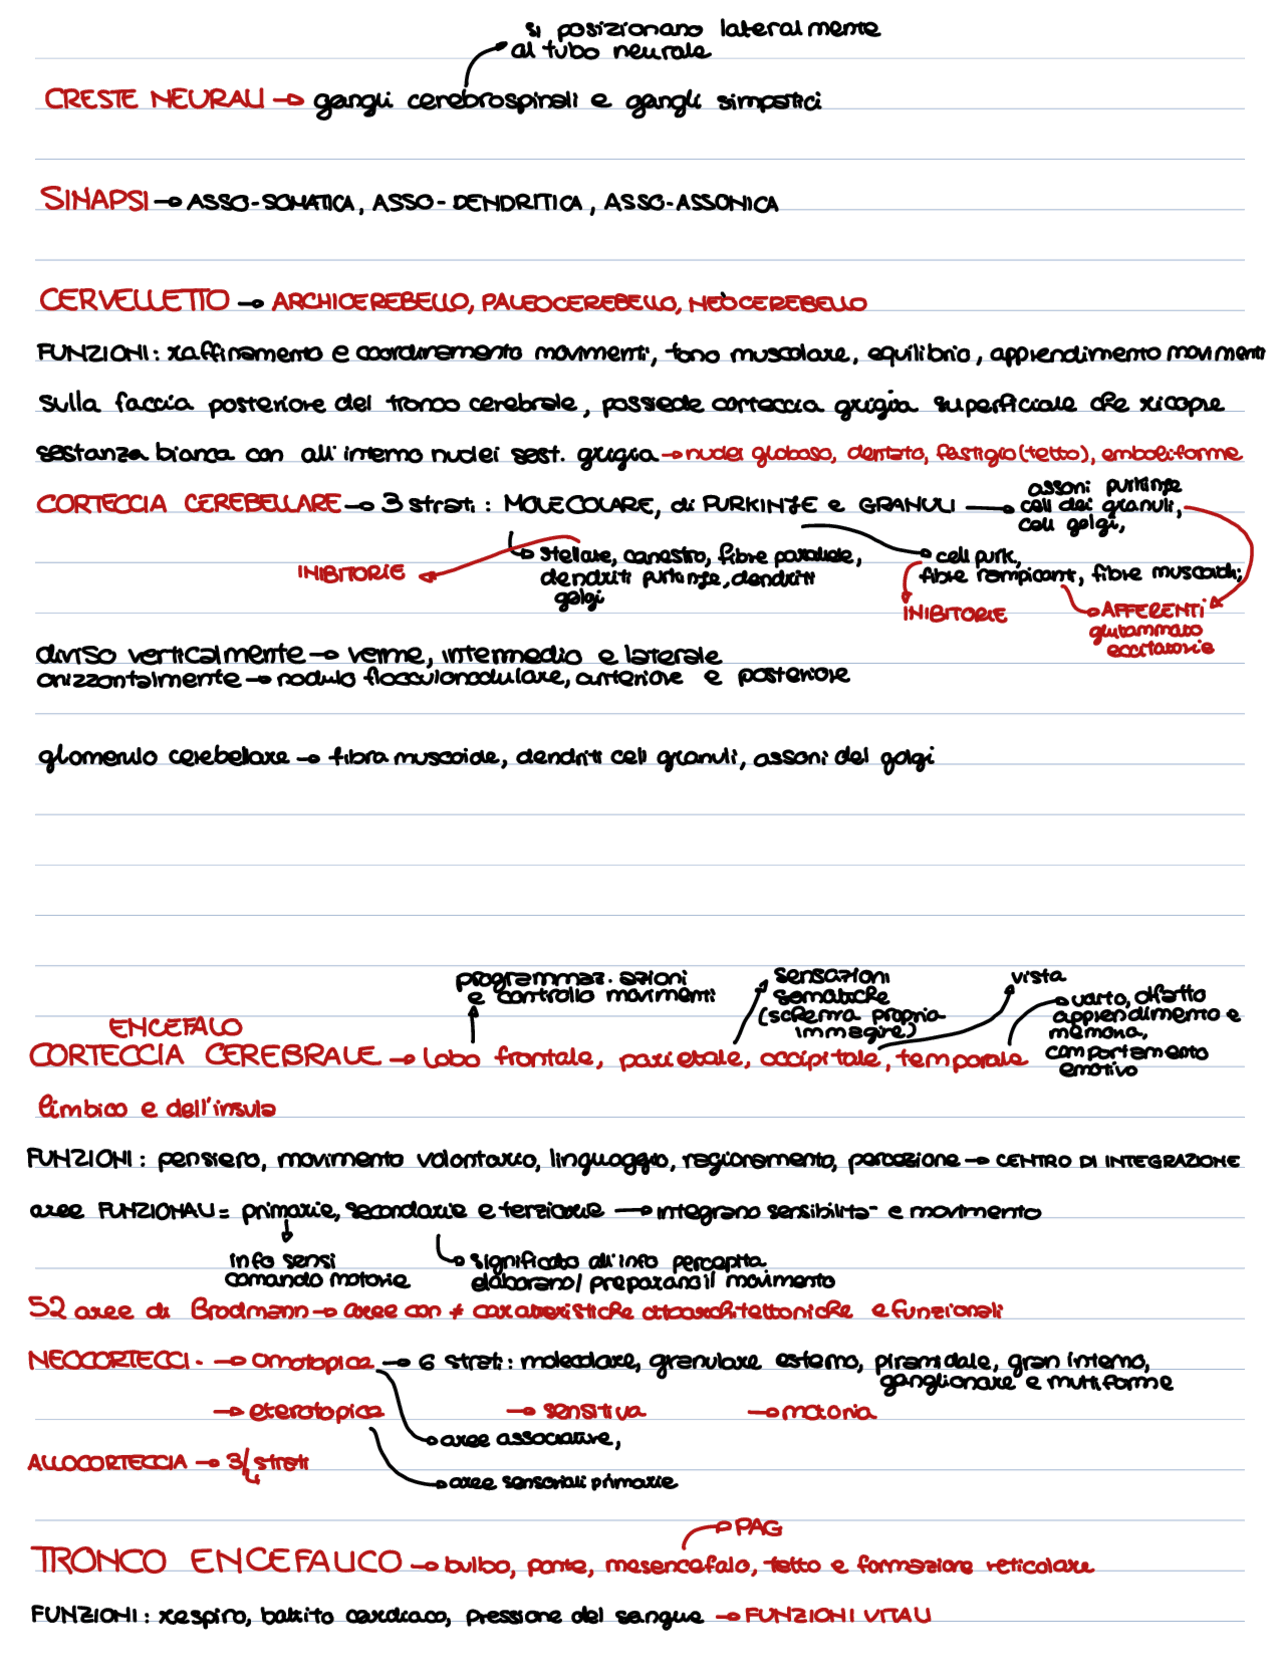 si posizionano lateralmente
al tubo neurale
CRESTE NEURALI → gangli cerebrospinali e gangli simpatici
SINAPSI → ASSO-SOMATICA, ASSO-DENDRITICA, ASSO-ASSONICA
CERVELLETTO → ARCHICEREBELLO, PALEOCEREBELLO, NEOCEREBELLO
FUNZIONI: raffinamento e coordinamento movimenti, tono muscolare, equilibrio, apprendimento movimenti
sulla faccia posteriore del tronco cerebrale, possiede corteccia grigia superficiale che ricopre
sostanza bianca con all'interno nuclei sost. grigia → nuclei globoso, dentato, fastigio (tetto), emboliforme
CORTECCIA CEREBELLARE → 3 strati: MOLECOLARE, di PURKINJE e GRANULI → assoni purkinje
cell dei granuli,
cell golgi,
stellate, canestro, fibre parallele,
dendriti purkinje, dendriti
golgi
INIBITORIE
cell purk,
fibre rampicanti, fibre muscoidi;
INIBITORIE
AFFERENTI
glutammato
eccitatorie
diviso verticalmente → verme, intermedio e laterale
orizzontalmente → nodulo flocculonodulare, anteriore e posteriore
glomerulo cerebellare → fibra muscoide, dendriti cell granuli, assoni del golgi
programmaz. azioni
e controllo movimenti
sensazioni
somatiche
(schema propria
immagine)
vista
udito, olfatto
apprendimento e
memoria,
comportamento
emotivo
ENCEFALO
CORTECCIA CEREBRALE → lobo frontale, parietale, occipitale, temporale
limbico e dell'insula
FUNZIONI: pensiero, movimento volontario, linguaggio, ragionamento, percezione → CENTRO DI INTEGRAZIONE
aree FUNZIONALI = primarie, secondarie e terziarie → integrano sensibilità e movimento
info sensi
comando motorie
significato all'info percepita
elaborano/preparano il movimento
52 aree di Brodmann → aree con ≠ caratteristiche citoarchitettoniche e funzionali
NEOCORTECCI. → omotopica → 6 strati: molecolare, granulare esterno, piramidale, gran interno,
ganglionare e multiforme
→ eterotopica → sensitiva → motoria
aree associative,
ALLOCORTECCIA → 3/4 strati
aree sensoriali primarie
PAG
TRONCO ENCEFALICO → bulbo, ponte, mesencefalo, tetto e formazione reticolare
FUNZIONI: respiro, battito cardiaco, pressione del sangue → FUNZIONI VITALI